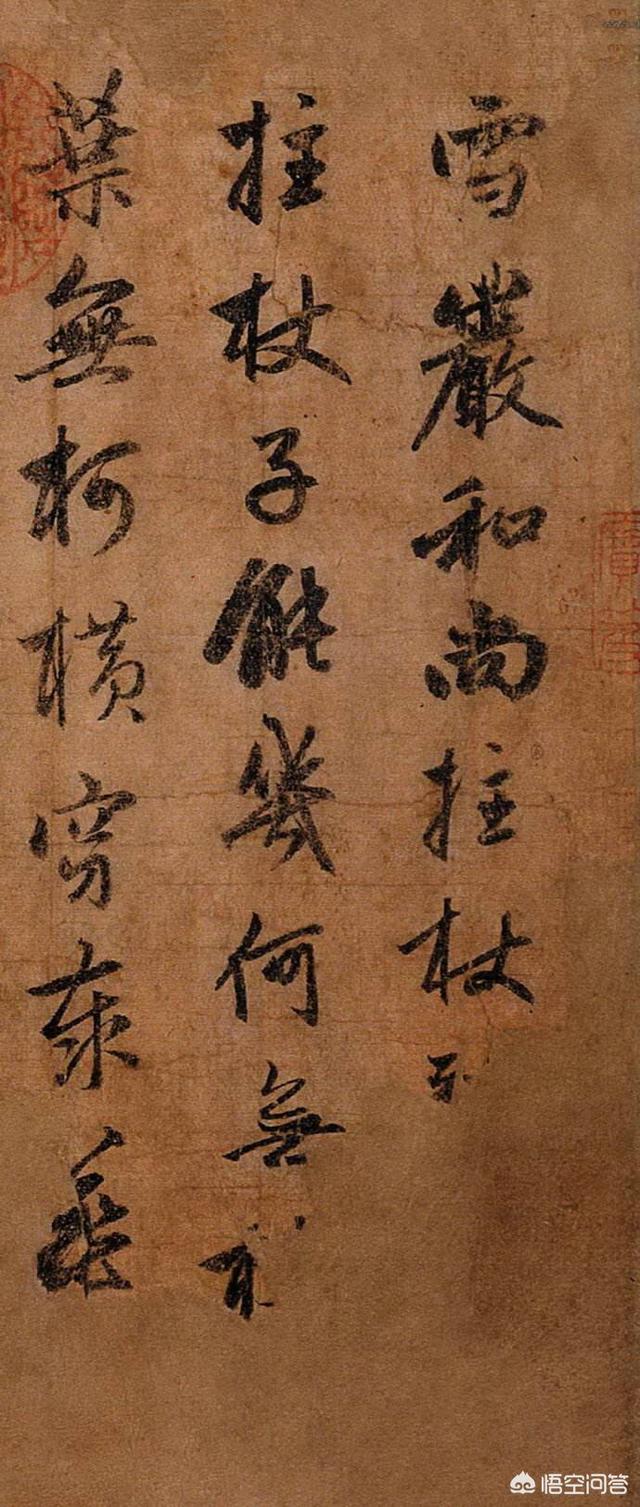 雪巖和尚拄杖
拄杖子能幾何無
葉無柯橫穿
悟空问答